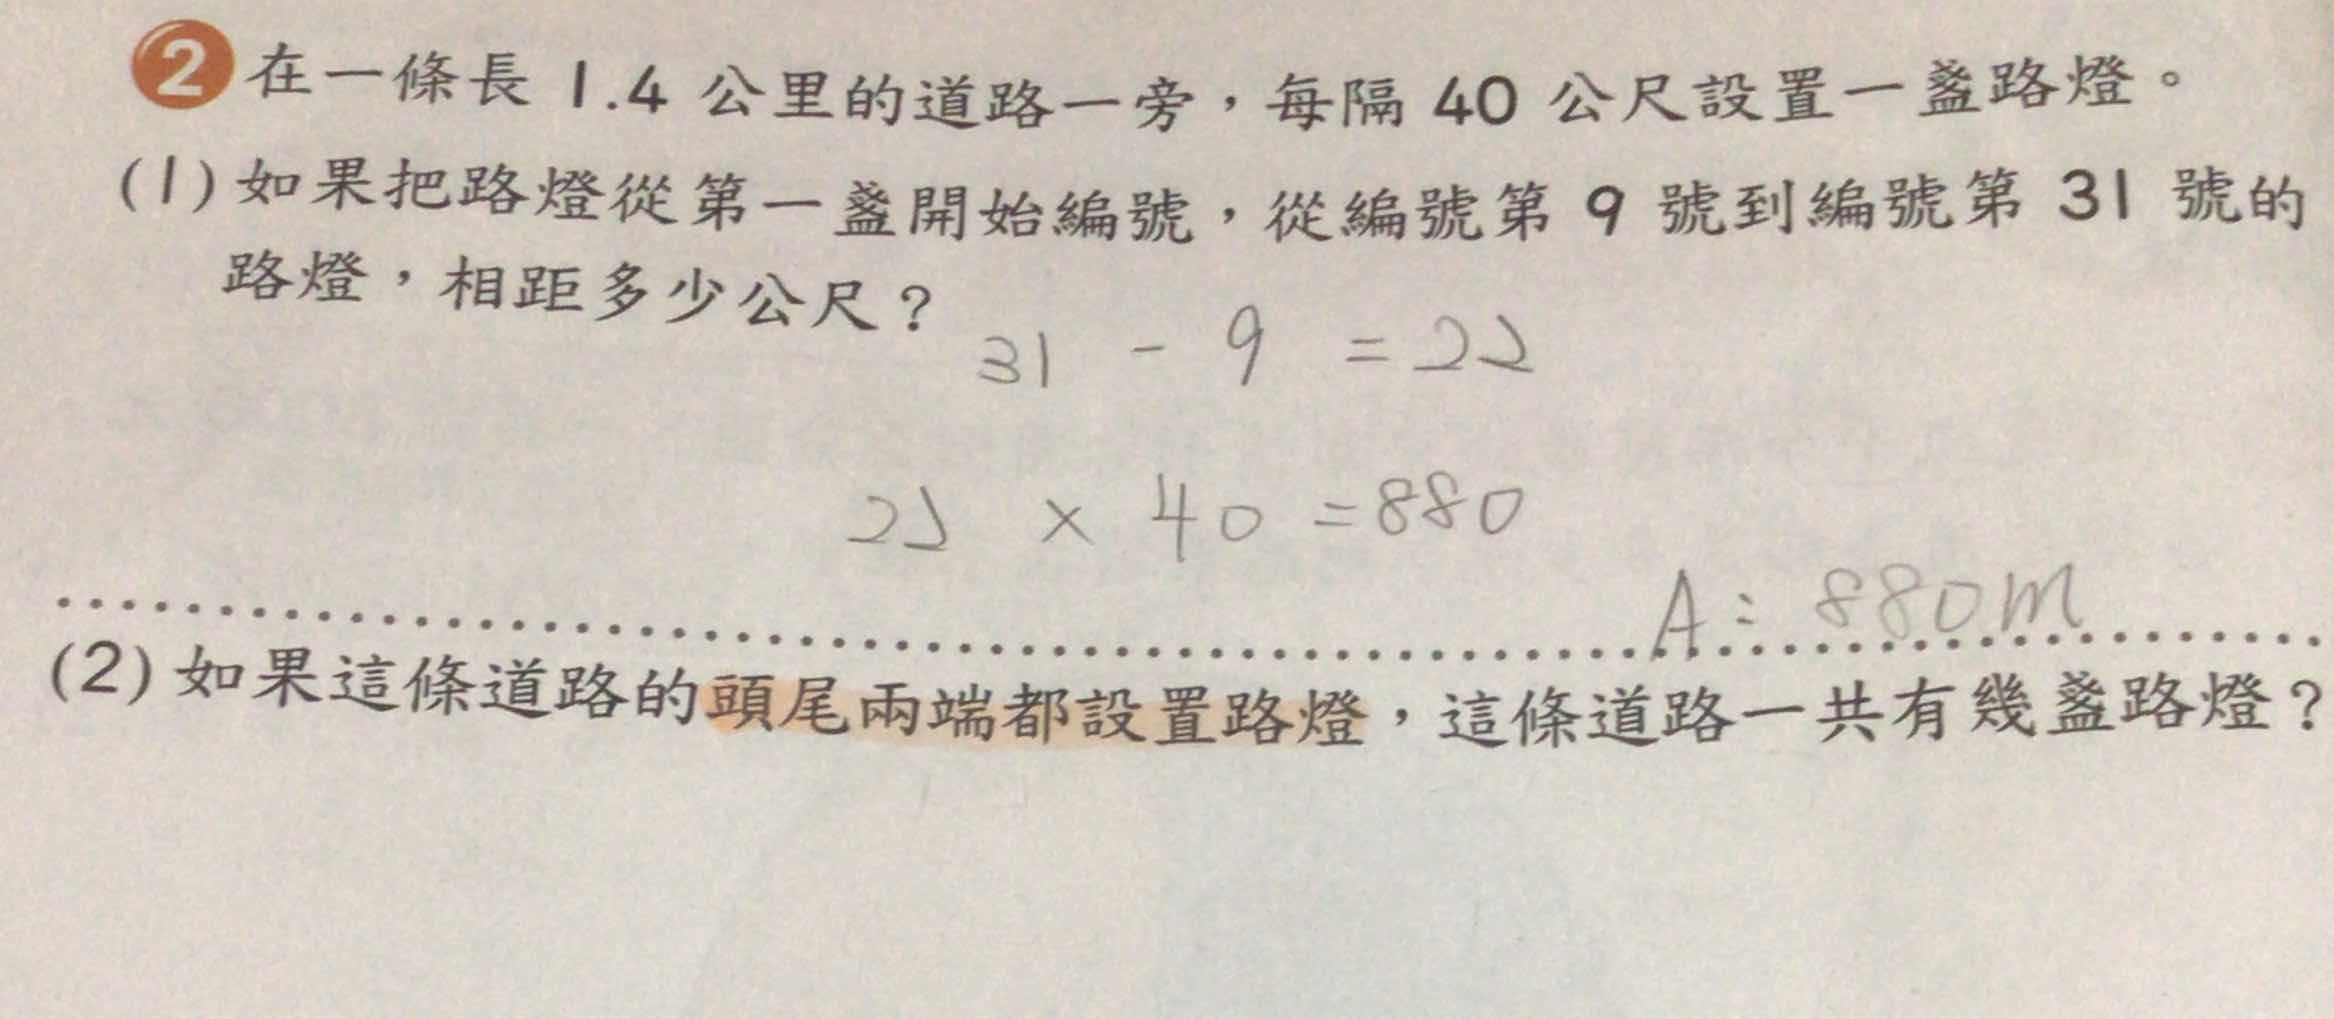 2 在一條長 1.4 公里的道路一旁，每隔 40 公尺設置一盞路燈。
(1) 如果把路燈從第一盞開始編號，從編號第 9 號到編號第 31 號的
路燈，相距多少公尺？
31 - 9 = 22
22 × 40 = 880
A: 880m
(2) 如果這條道路的頭尾兩端都設置路燈，這條道路一共有幾盞路燈？